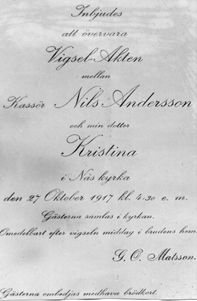 Inbjudes
att övervara
Vigsel-Akten
mellan
Kassör Nils Andersson
och min dotter
Kristina
i Näs kyrka
den 27 Oktober 1917 kl. 4.30 e. m.
Gästerna samlas i kyrkan.
Omedelbart efter vigseln middag i brudens hem.
G. O. Matsson.
Gästerna ombedjas medhava brödkort.